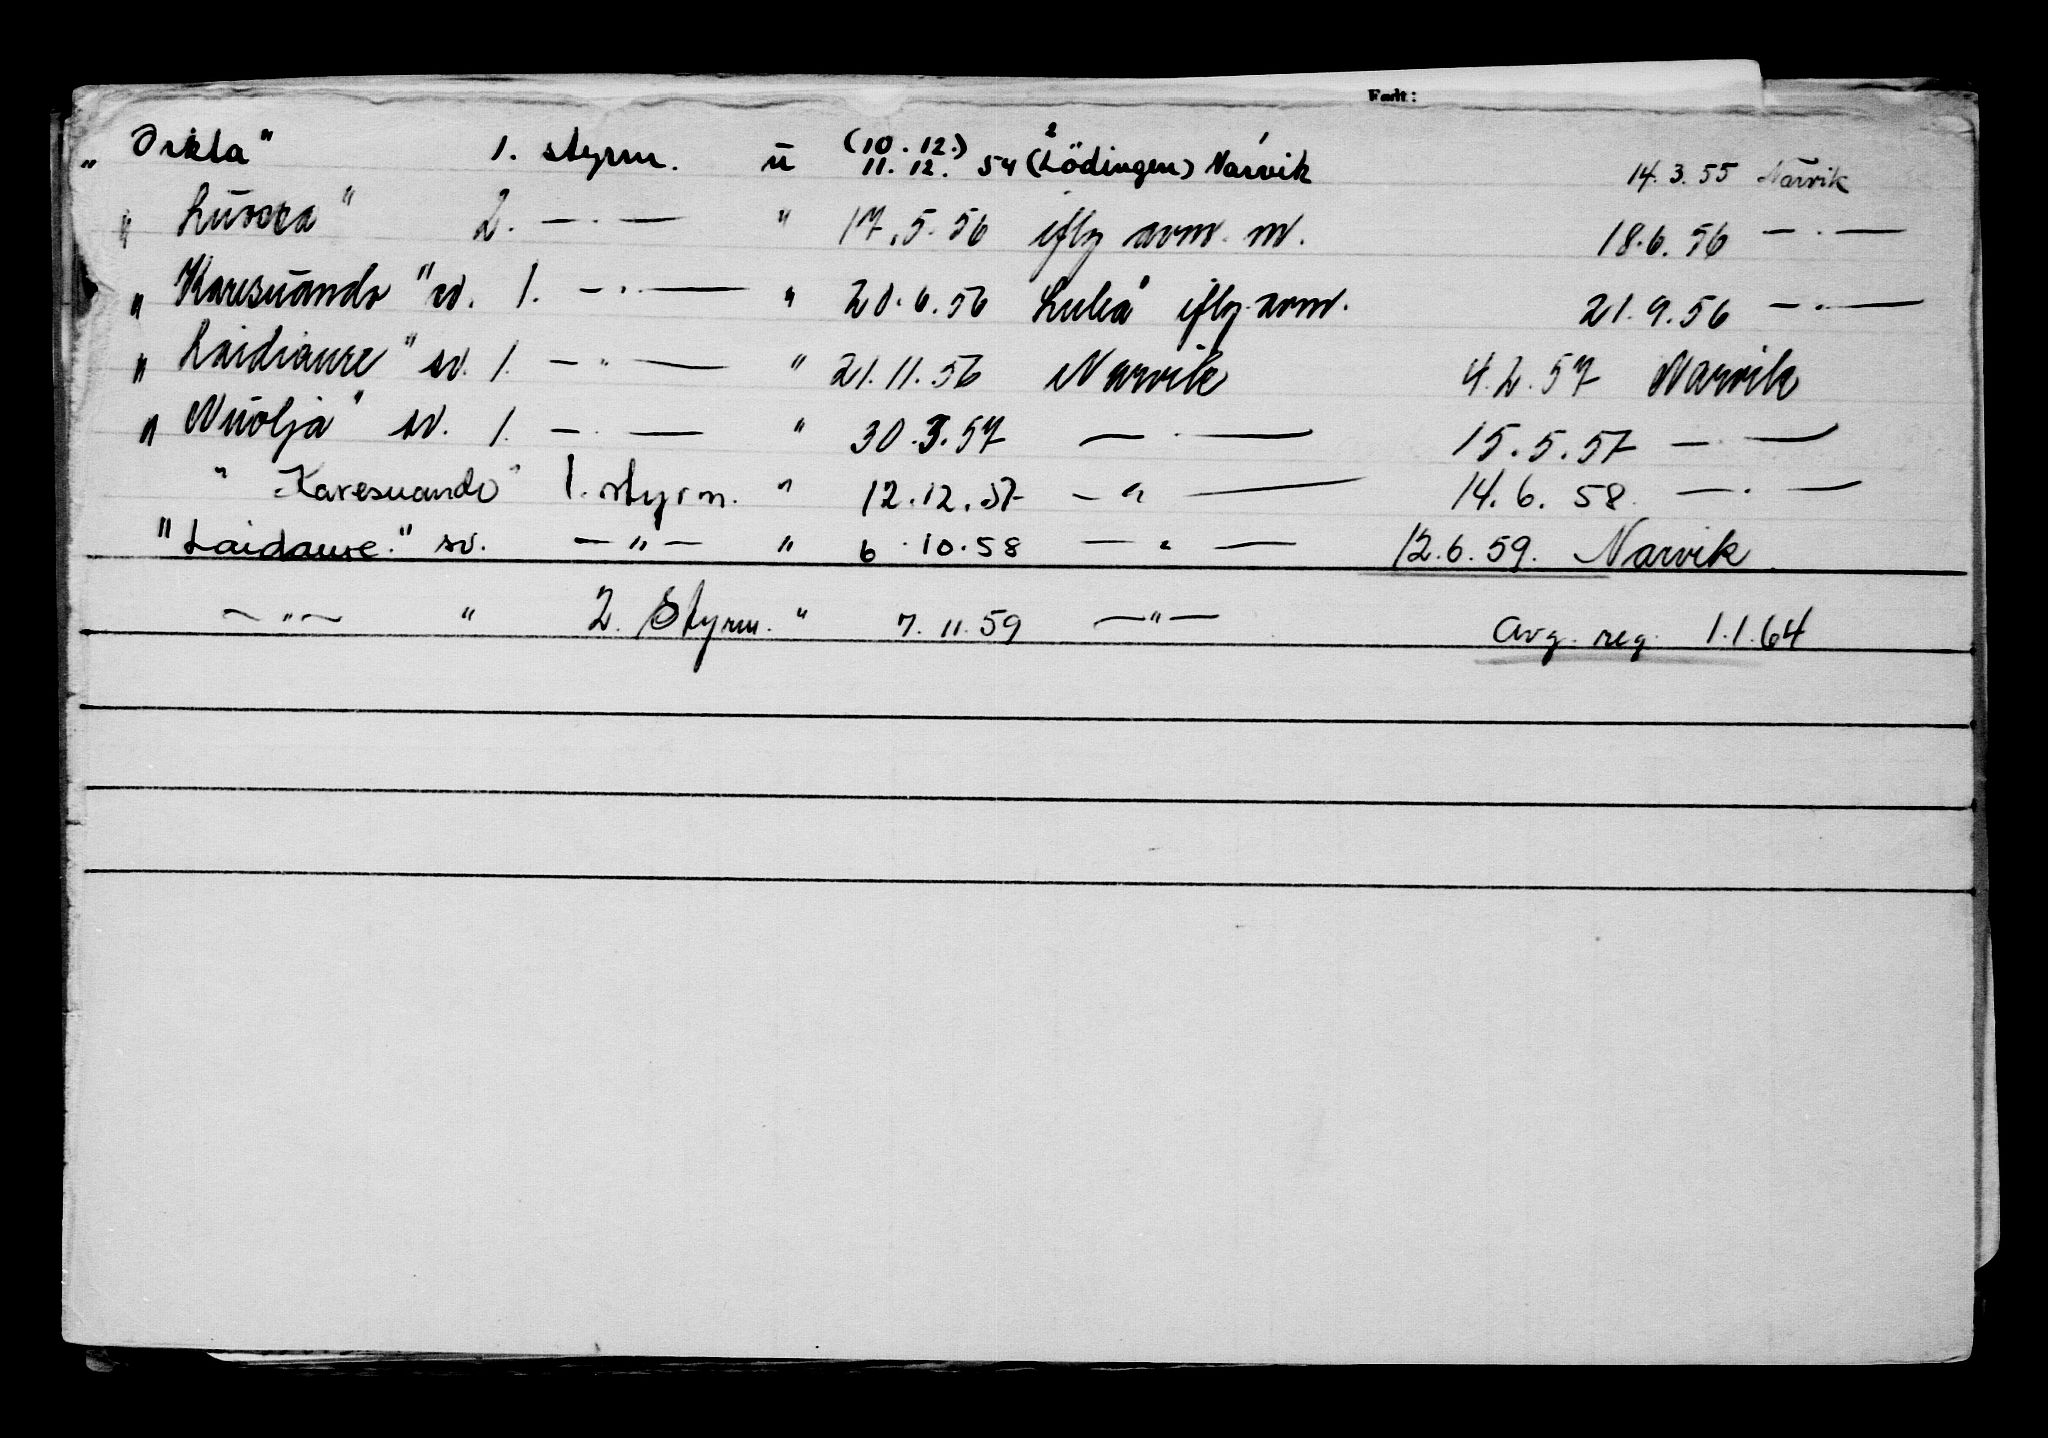 Født:
„Orkla" 1. styrm. u (10.12.) 11.12. 54 (Lödingen) Narvik 14.3.55 Narvik
„Luossa" 2. —·— " 17.5.56 ifly avm. m. 18.6.56 —·—
„Karesuando" sv. 1. —·— " 20.6.56 Luleå ifly avm. 21.9.56 —·—
„Laidiaure" sv. 1. —"— " 21.11.56 Narvik 4.2.57 Narvik
„Nuolja" sv. 1. —·— " 30.3.57 —·— 15.5.57 —·—
"Karesuando" 1. styrm. " 12.12.57 —"— 14.6.58. —·—
"Laidaure." sv. —"— " 6.10.58 —"— 12.6.59. Narvik
—"— " 2. Styrm. " 7.11.59 —"— Avg. reg. 1.1.64